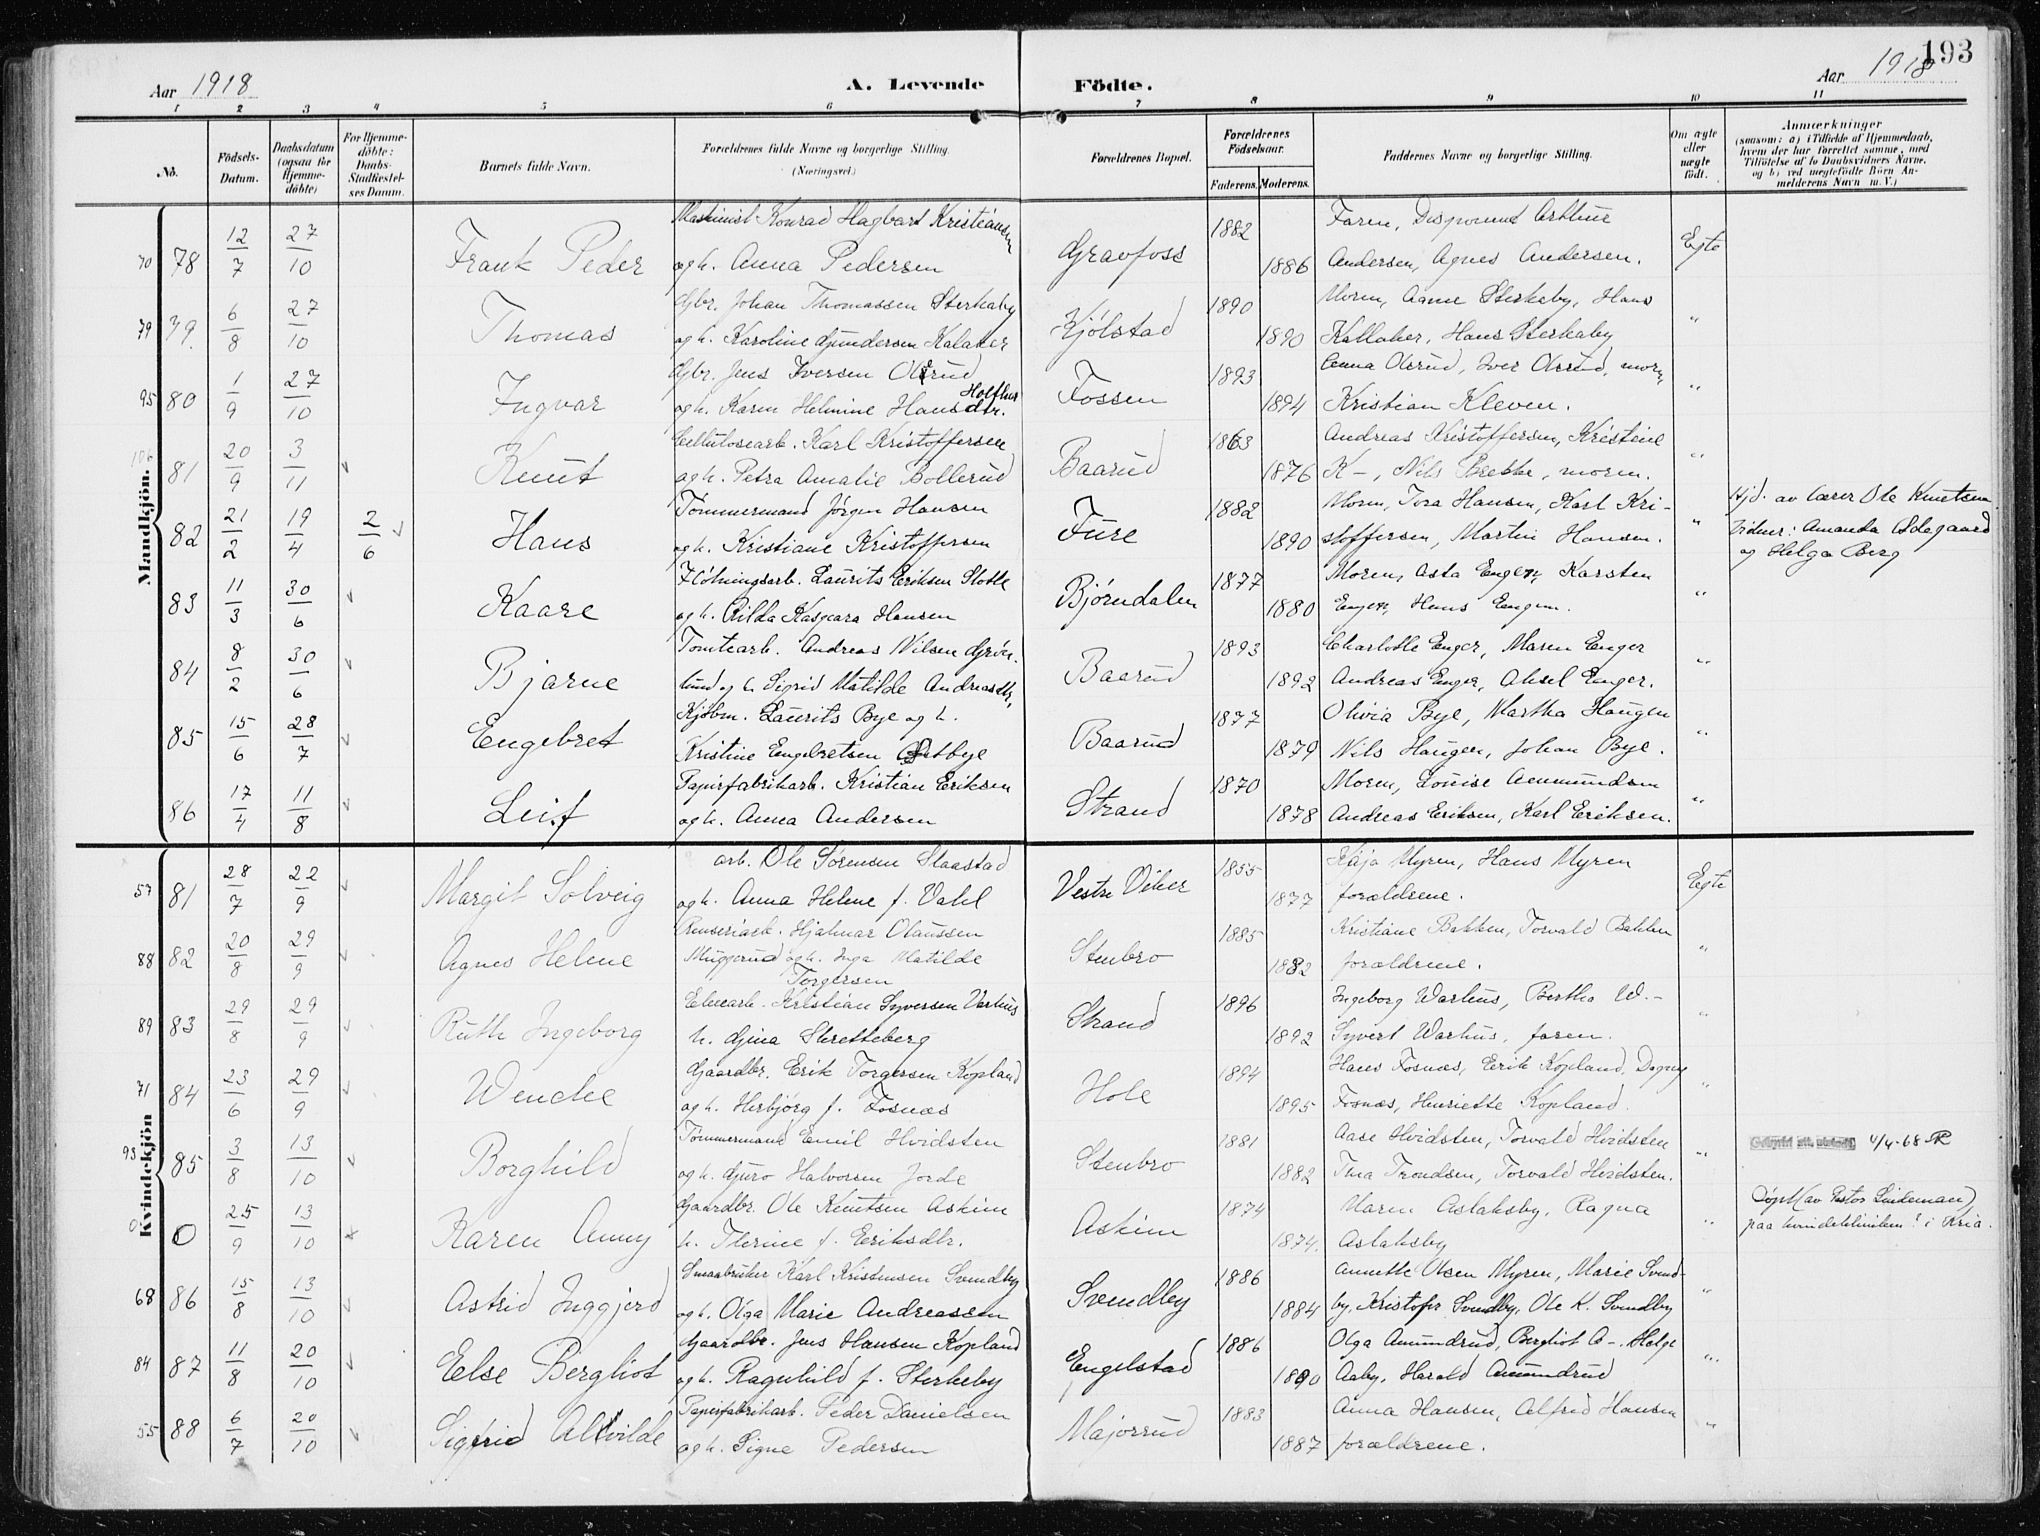 193
Aar 1918
A. Levende
Födte.
Aar 1918
1 2 3 4 5 6 7 8 9 10 11
No.
Födsels-Datum.
Daabsdatum (ogsaa for Hjemme-döbte)
For Hjemme-döbte: Daabs-Stadfæstel-ses Datum.
Barnets fulde Navn.
Forældrenes fulde Navne og borgerlige Stilling. (Næringsvei.)
Forældrenes Bopæl.
Forældrenes Födselsaar.
Faderens. Moderens.
Faddernes Navne og borgerlige Stilling.
Om ægte eller uægte födt.
Anmærkninger (saasom: a) i Tilfælde af Hjemmedaab, hvem der har forrettet samme, med Tilföielse af to Daabsvidners Navne, og b) ved uægtefödte Börn An-melderens Navn m. V.)
Mandkjön.
70 78 12/7 27/10 Frank Peder Maskinist Konrad Hagbart Kristiansen 1882 Faren, Disponent Arthur
og h. Anna Pedersen Gravfoss 1886 Andersen, Agnes Andersen. Egte
79 79. 6/8 27/10 Thomas Gbr. Johan Thomassen Sterkeby 1890 Moren, Aame Sterkeby, Hans
og h. Karoline Gundersen Kalaker Kjölstad 1890 Kallaker, Hans Sterkeby "
95 80 1/9 27/10 Ingvar Gbr. Jens Iversen Olsrud 1893 Anna Olsrud, Iver Olsrud, moren,
og h. Karen Helmine Hansdtr. Fossen 1894 Kristian Kleven. "
106 81 20/9 3/11 Knut Cellulosearb. Karl Kristoffersen 1863 Andreas Kristoffersen, Kristine
og h. Petra Amalie Bollerud Baarud 1876 K-, Nils Brekke, moren. "
82 21/2 19/4 2/6 Hans Tömmermand Jörgen Hansen 1882 Moren, Tora Hansen, Karl Kri-
og h. Kristiane Kristoffersen Fure 1890 stoffersen, Martin Hansen. "
Hjd. av Lærer Ole Knutsen
Vidner: Amanda Odegaard
og Helga Berg
83 11/3 30/6 Kaare Flötningsarb. Laurits Eriksen Slotte 1877 Moren, Asta Engen, Karsten
og h. Rilda Kaspara Hansen Bjørndalen 1880 Engen, Hans Engen. "
84 8/2 30/6 Bjarne Tomtearb. Andreas Nilsen Grön- 1893 Charlotte Enger, Maren Enger
lund og h. Sigrid Matilde Andreasdtr, Baarud 1892 Andreas Enger, Aksel Enger. "
85 15/6 28/7 Engebret Kjöbm. Laurits Bye og h. 1877 Olivia Bye, Martha Haugen
Kristine Engebretsen Østbye Baarud 1879 Nils Haugen, Johan Bye. "
86 17/4 11/8 Leif Papirfabrikarb. Kristian Eriksen 1870 Moren, Louise Aamundsen
og h. Anna Andersen Strand 1878 Andreas Eriksen, Karl Eriksen. "
Kvindekjön
57 81 28/7 22/9 Margit Solveig arb. Ole Sørensen Staastad 1855 Kaja Myren, Hans Myren
og h. Anna Helene f. Dahl Vestre Viker 1877 forældrene. Egte
88 82 20/8 29/9 Agnes Helene Renseriarb. Hjalmar Olaussen 1885 Kristiane Bakken, Torvald Bakken
Muggerud og h. Inga Matilde Stenbro 1882 forældrene. "
Torgersen
89 83 29/8 29/9 Ruth Ingeborg Kristian Syversen Varhus 1896 Ingeborg Warhus, Bertha W.-
h. Gina Skretteberg Strand 1892 Syvert Warhus, faren. "
71 84 23/6 29/9 Wenche Gaardbr. Erik Torgersen Kopland 1894 Hans Fosnæs, Erik Kopland, Dagny
og h. Herbjörg f. Fosnæs Hole 1895 Fosnæs, Henriette Kopland. "
93 85 3/8 13/10 Borghild Tömmermand Emil Hvidsten 1881 Aase Hvidsten, Torvald Hvidsten
og h. Guro Halvorsen Jorde Stenbro 1882 Tina Trondsen, Torvald Hvidsten. "
4/4-68
0 25/9 13/10 Karen Anny Gaardbr. Ole Knutsen Askim 1874 Maren Aslaksby, Ragna
h. Therine f. Eriksdtr. Askim 1874. Aslaksby "
Döpt (av Pastor Lindeman)
paa kvindeklinikken? i Kria.
68 86 15/8 13/10 Astrid Inggjerd Smaabruker Karl Kristensen Svendby 1886 Annette Olsen Myren, Marie Svend-
og h. Olga Marie Andreassen Svendby 1884 by, Kristofr Svendby, Ole K. Svendby "
84 87 11/8 20/10 Else Bergliot Gaardbr. Jens Hansen Kopland 1886 Olga Amundrud, Bergliot A-. Helge
og h. Ragnhild f. Sterkeby Engelstad 1890 Aaby, Harald Amundrud "
55 88 6/7 20/10 Sigfrid Alfvilde Papirfabrikarb. Peder Danielsen 1883 Anna Hansen, Alfred Hansen
og h. Signe Pedersen Majorrud 1887 forældrene. "